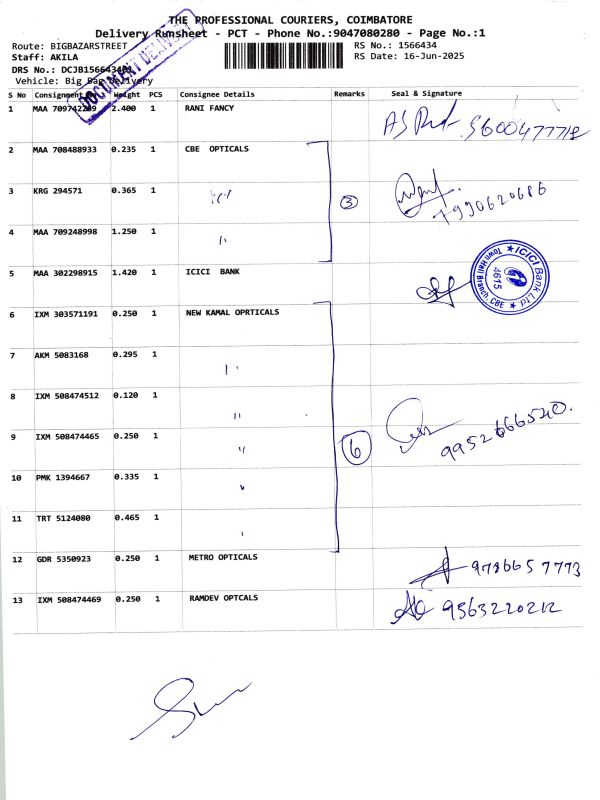 THE PROFESSIONAL COURIERS, COIMBATORE
Delivery Runsheet - PCT - Phone No.:9047080280 - Page No.:1
Route: BIGBAZARSTREET RS No.: 1566434
Staff: AKILA RS Date: 16-Jun-2025
DRS No.: DCJB1566434
Vehicle: Big Bag Delivery
DOCUMENT DELIVERY
S No Consignment Weight PCS Consignee Details Remarks Seal & Signature
1 MAA 709742 2.400 1 RANI FANCY 5600477718
2 MAA 708488933 0.235 1 CBE OPTICALS
3 KRG 294571 0.365 1 " 3 7990620686
4 MAA 709248998 1.250 1 "
5 MAA 302298915 1.420 1 ICICI BANK
ICICI Bank Ltd. Town Hall Branch, CBE 4615
6 IXM 303571191 0.250 1 NEW KAMAL OPRTICALS
7 AKM 5083168 0.295 1 "
8 IXM 508474512 0.120 1 "
9 IXM 508474465 0.250 1 " 6 9952666520.
10 PMK 1394667 0.335 1 "
11 TRT 5124080 0.465 1 "
12 GDR 5350923 0.250 1 METRO OPTICALS 9786657773
13 IXM 508474469 0.250 1 RAMDEV OPTCALS 9363220212